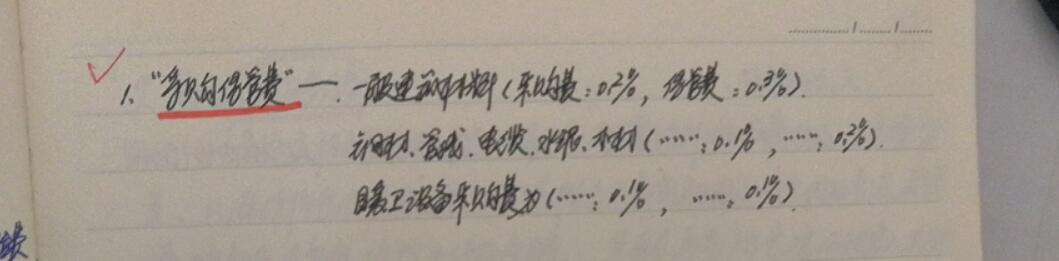 1、"采购保管费"——.一般建筑材料(采购费:0.2%,保管费:0.3%).
钢材、管线、电缆、水泥、木材(……:0.1%,……:0.2%).
暖卫设备采购费为(……:0.1%,……:0.1%)
费